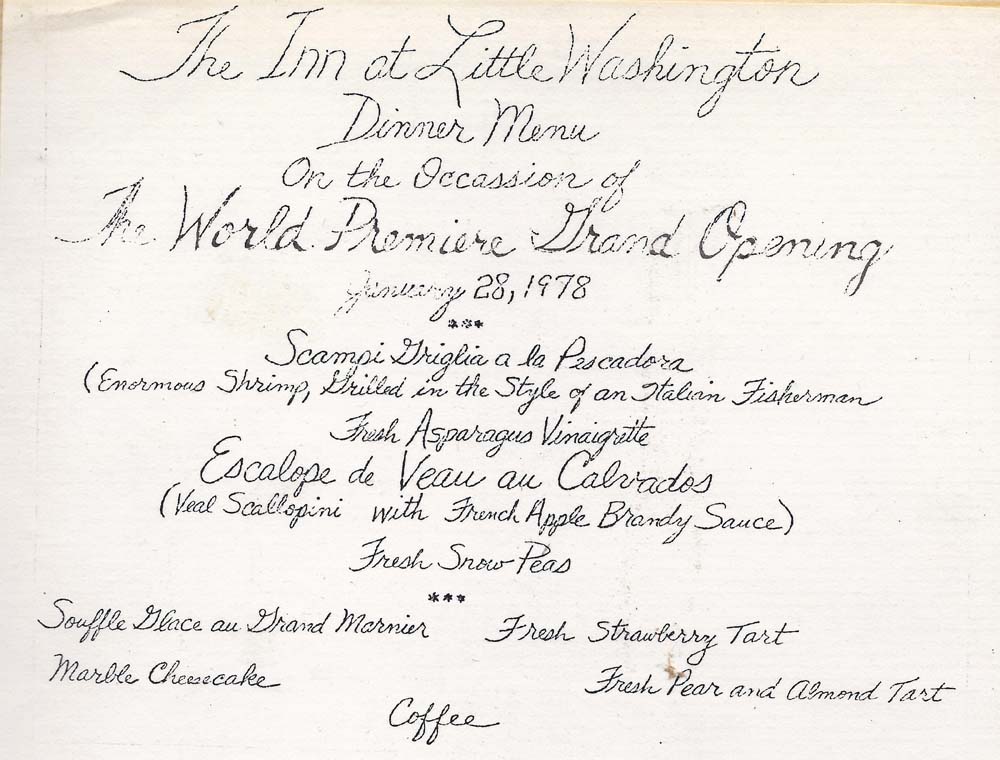 The Inn at Little Washington
Dinner Menu
On the Occassion of
The World Premiere Grand Opening
January 28, 1978
***
Scampi Griglia a la Pescadora
(Enormous Shrimp, Grilled in the Style of an Italian Fisherman
Fresh Asparagus Vinaigrette
Escalope de Veau au Calvados
(Veal Scallopini with French Apple Brandy Sauce)
Fresh Snow Peas
***
Souffle Glace au Grand Marnier Fresh Strawberry Tart
Marble Cheesecake Fresh Pear and Almond Tart
Coffee